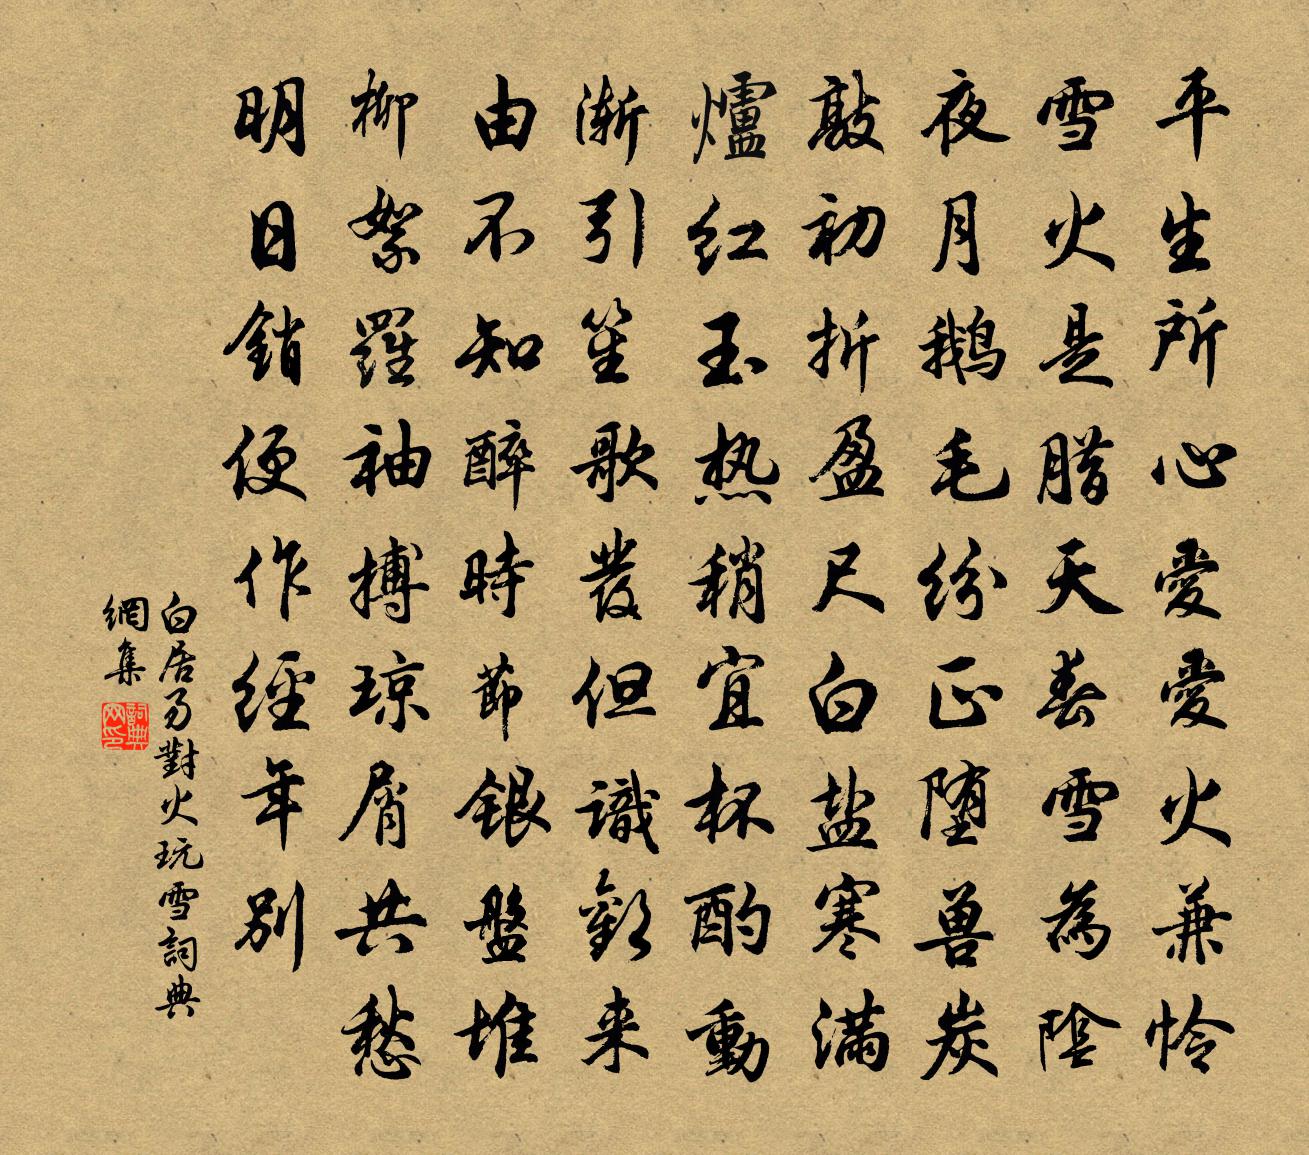 平生所心愛愛火兼怜
雪火是腊天春雪為陰
夜月鹅毛纷正堕兽炭
敲初折盈尺白盐寒満
爐红玉热稍宜杯酌動
渐引笙歌發但識歡来
由不知醉時節银盤堆
柳絮羅袖摶琼屑共愁
明日銷便作經年别
白居易對火玩雪詞典
網集
詞典网印